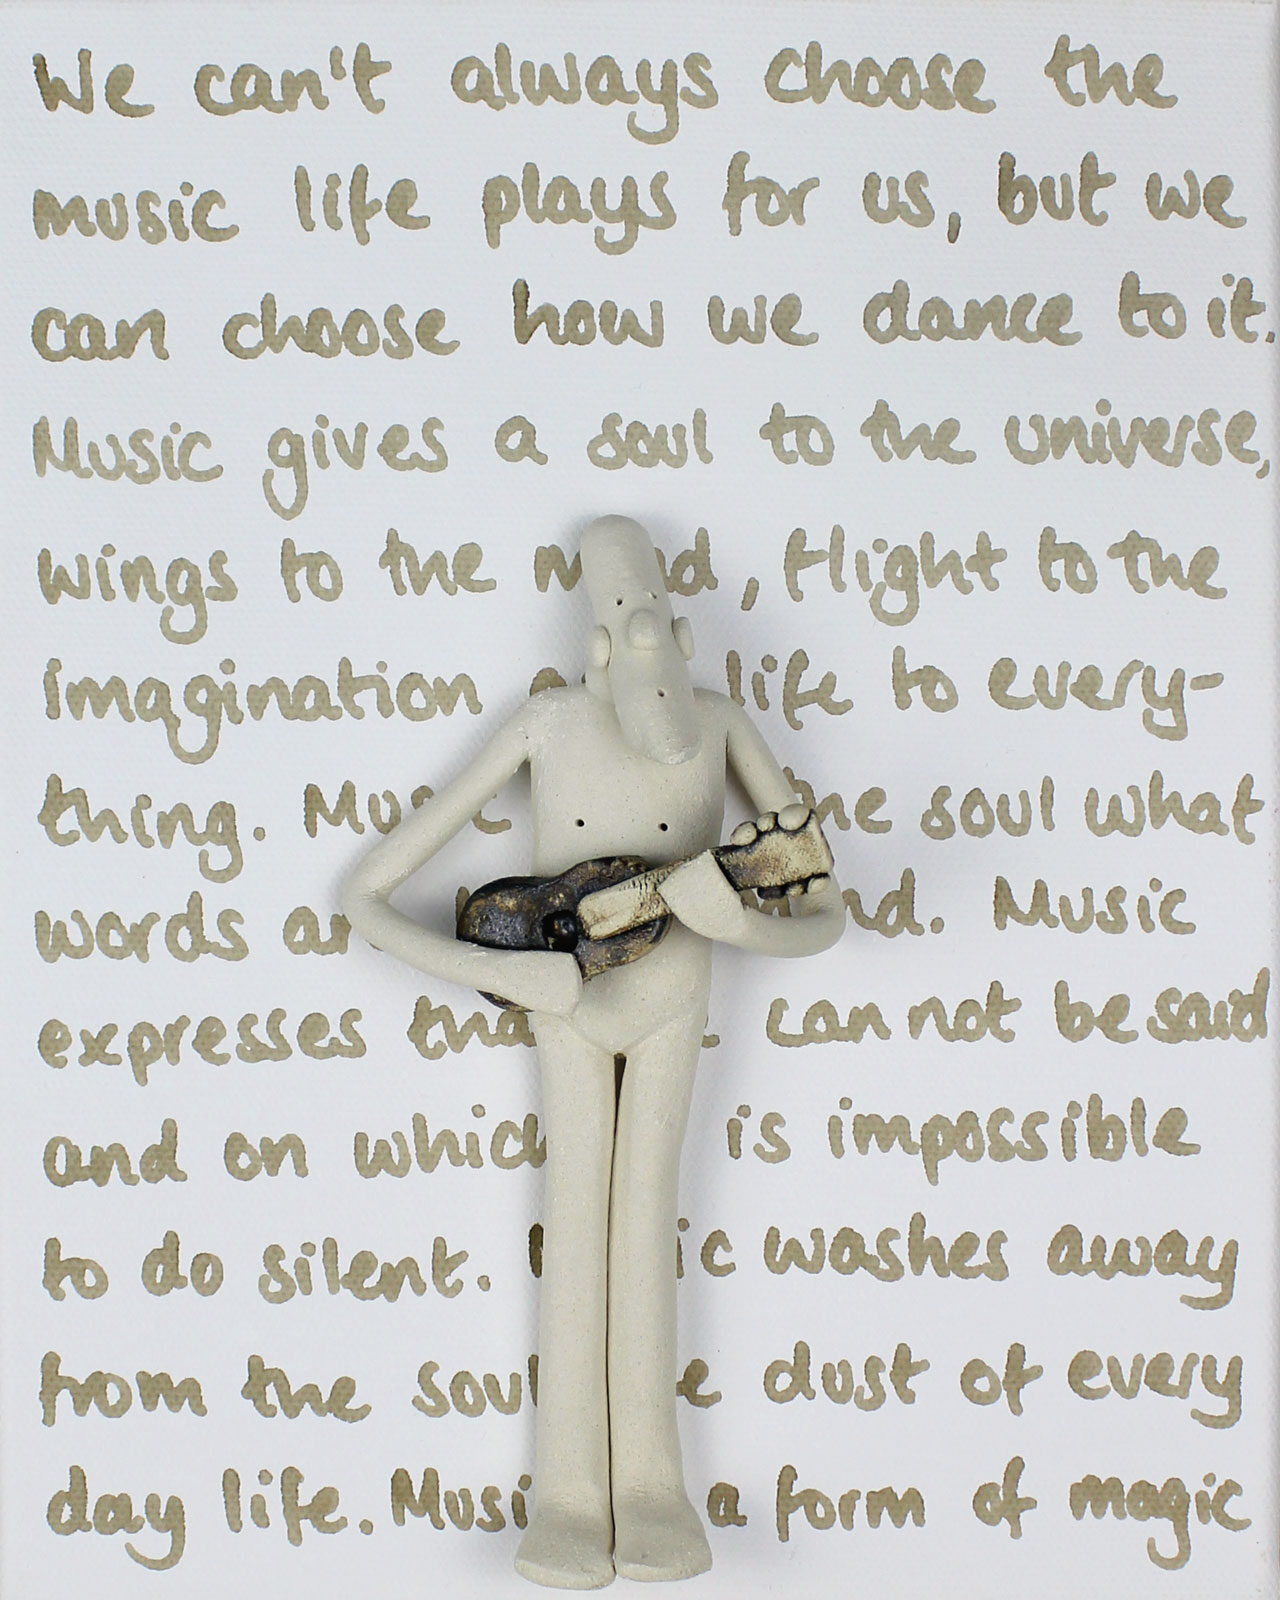 We can't always choose the
music life plays for us, but we
can choose how we dance to it.
Music gives a soul to the universe,
wings to the mind, flight to the
imagination life to every-
thing. Music the soul what
words are mind. Music
expresses that cannot be said
and on which is impossible
to do silent. Music washes away
from the soul the dust of every
day life. Music a form of magic